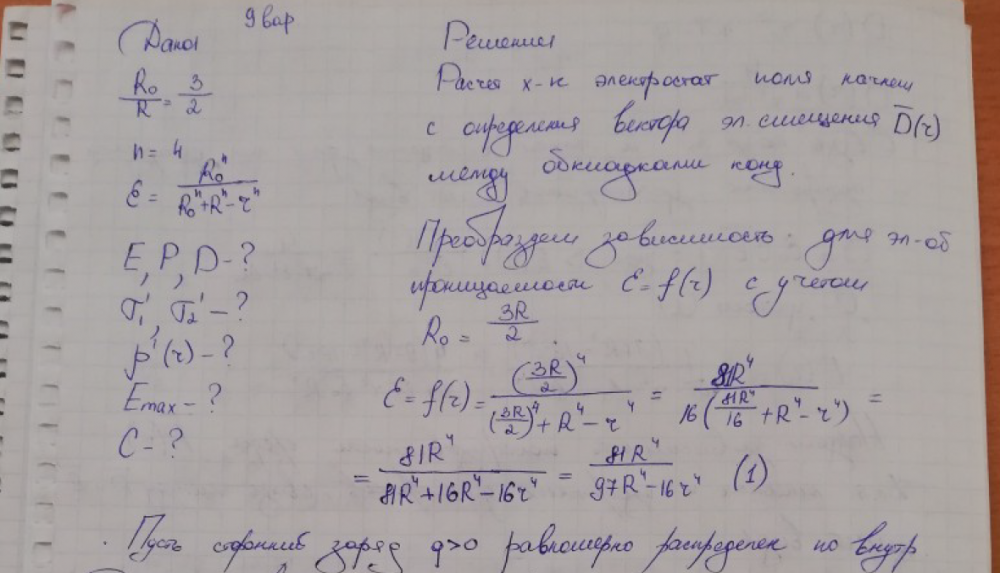 9 вар
Дано:
R₀/R = 3/2
n = 4
ε = R₀ⁿ/(R₀ⁿ+Rⁿ-rⁿ)
E, P, D - ?
σ₁', σ₂' - ?
ρ'(r) - ?
Emax - ?
C - ?
Решение
Расчет х-к электростат поля начнем
с определения вектора эл. смещения D̅(r)
между обкладками конд.
Преобразуем зависимость для эл-об
проницаемости ε = f(r) с учетом
R₀ = 3R/2
ε = f(r) = (3R/2)⁴/((3R/2)⁴ + R⁴ - r⁴) = 81R⁴/(16(81R⁴/16 + R⁴ - r⁴)) =
= 81R⁴/(81R⁴+16R⁴-16r⁴) = 81R⁴/(97R⁴-16r⁴) (1)
Пусть сторонний заряд q>0 равномерно распределен по внутр